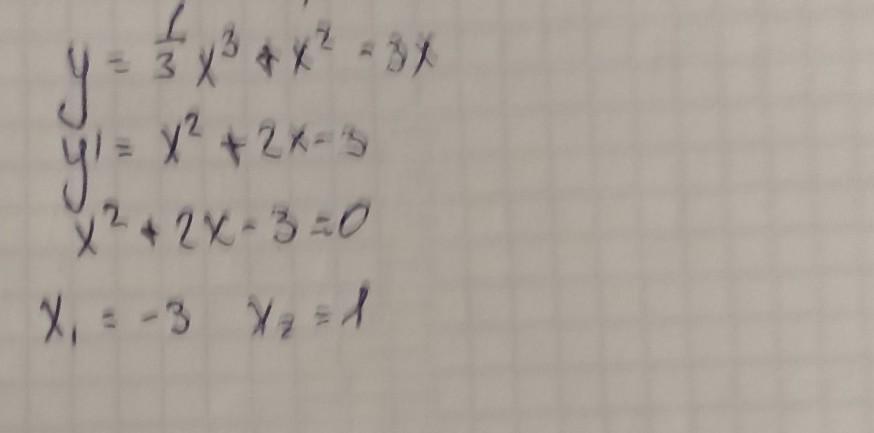 y = 1/3 x³ + x² - 3x
y' = x² + 2x - 3
x² + 2x - 3 = 0
x₁ = -3 x₂ = 1